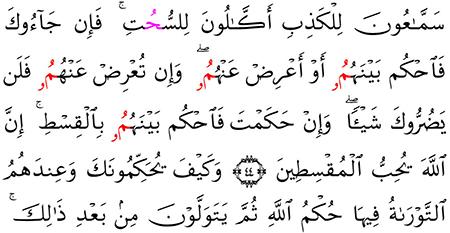 سَمَّٰعُونَ لِلْكَذِبِ أَكَّٰلُونَ لِلسُّحُتِ ۚ فَإِن جَآءُوكَ
فَٱحْكُم بَيْنَهُمُۥ أَوْ أَعْرِضْ عَنْهُمُۥ ۖ وَإِن تُعْرِضْ عَنْهُمُۥ فَلَن
يَضُرُّوكَ شَيْـًٔا ۖ وَإِنْ حَكَمْتَ فَٱحْكُم بَيْنَهُمُۥ بِٱلْقِسْطِ ۚ إِنَّ
ٱللَّهَ يُحِبُّ ٱلْمُقْسِطِينَ ٤٤ وَكَيْفَ يُحَكِّمُونَكَ وَعِندَهُمُ
ٱلتَّوْرَىٰةُ فِيهَا حُكْمُ ٱللَّهِ ثُمَّ يَتَوَلَّوْنَ مِنۢ بَعْدِ ذَٰلِكَ ۚ